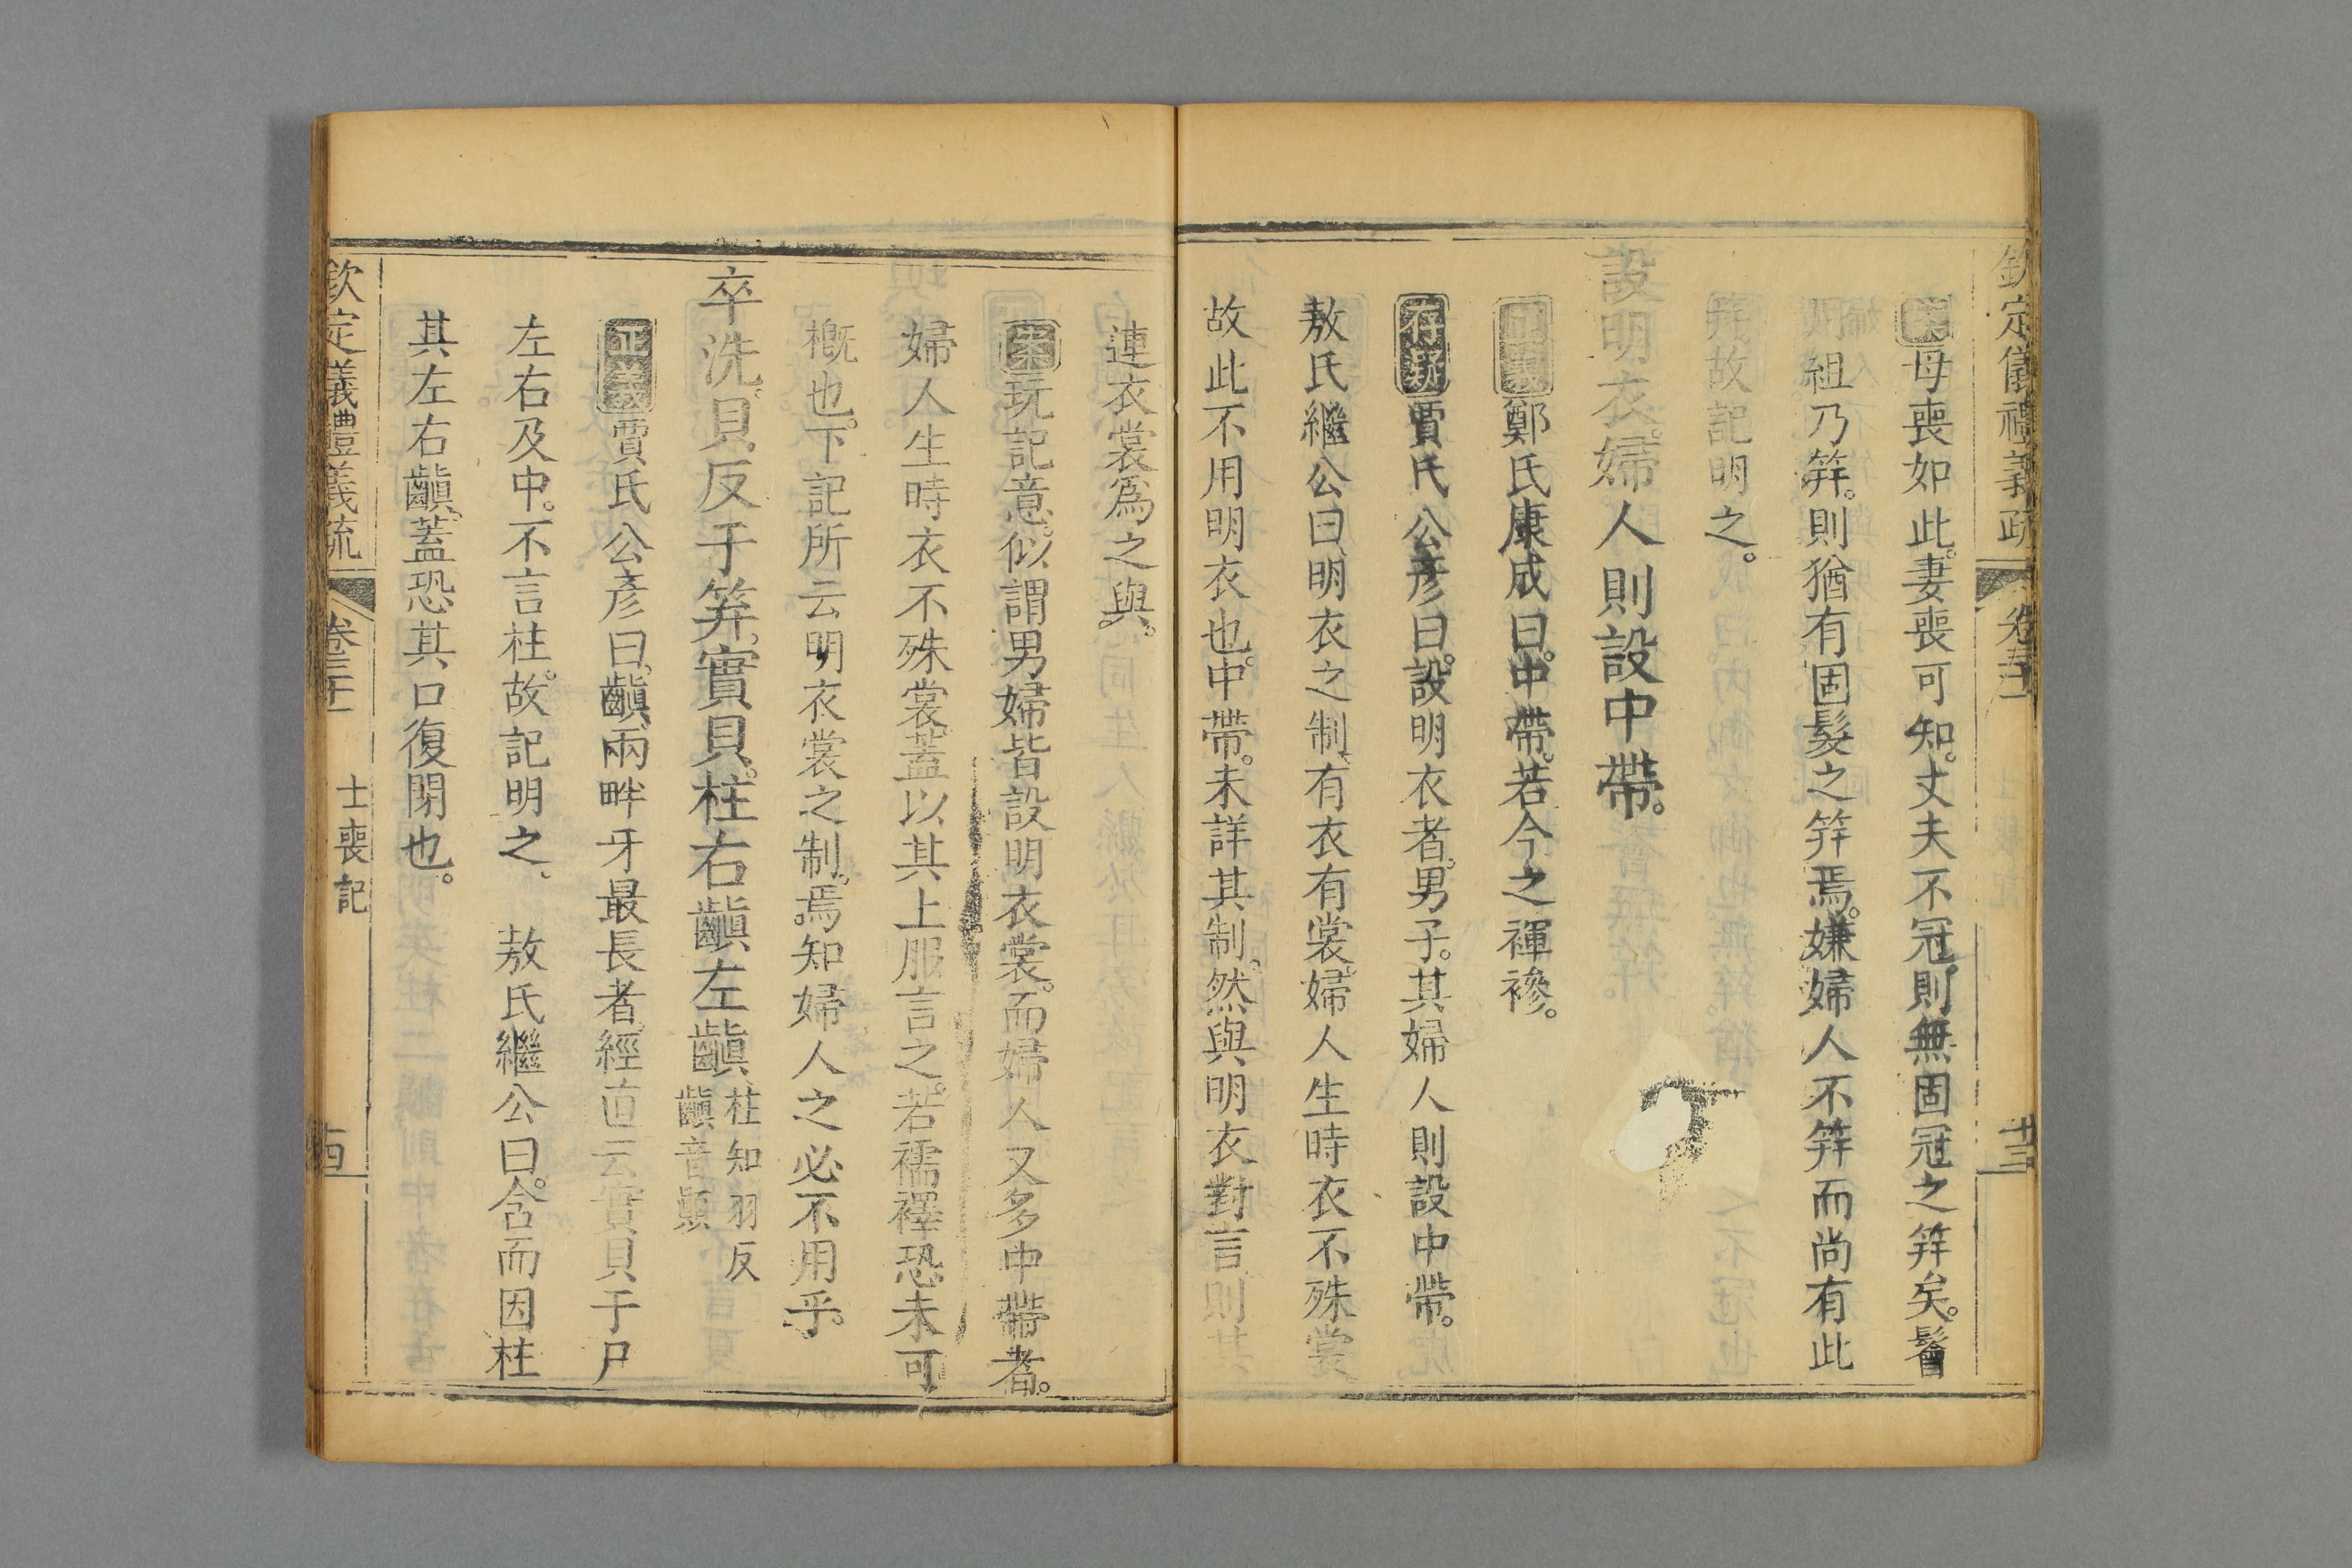 欽定儀禮義疏 卷三十二 十三
案母喪如此。妻喪可知。丈夫不冠。則無固冠之笄矣。鬠
組乃笄。則猶有固髮之笄焉。嫌婦人不笄而尚有此
笄故記明之。
設明衣。婦人則設中帶。
正義鄭氏康成曰。中帶。若今之褌襂。
存疑賈氏公彥曰。設明衣者。男子。其婦人則設中帶。
敖氏繼公曰、明衣之制、有衣有裳。婦人生時衣不殊裳
故此不用明衣也。中帶。未詳其制。然與明衣對言則其
連衣裳爲之與。
案玩記意。似謂男婦皆設明衣裳。而婦人又多中帶者。
婦人生時衣不殊裳。蓋以其上服言之。若襦襗恐未可
槪也。下記所云明衣裳之制。焉知婦人之必不用乎。
卒洗。貝。反于笲。實貝。柱右齻左齻 柱知羽反 齻音顚
正義賈氏公彥曰、齻、兩畔牙最長者。經直云實貝于尸
左右及中。不言柱。故記明之、 敖氏繼公曰。含而因柱
其左右齻、蓋恐其口復閉也。
欽定儀禮義疏 卷三十二 士喪記 十四